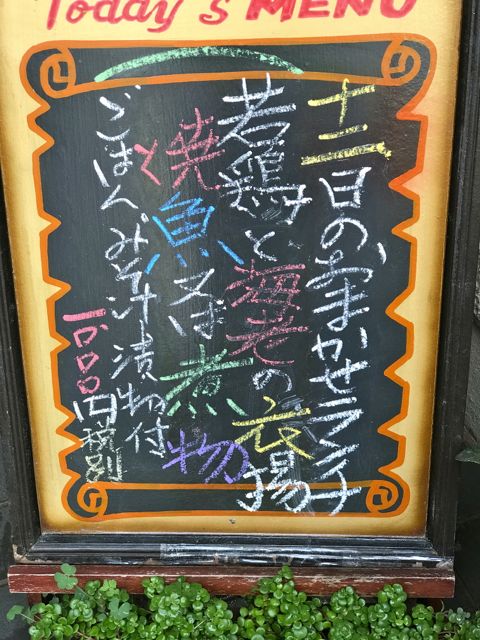 Today's MENU
十二日のおまかせランチ
若鶏と海老の衣揚
焼魚又は煮物
ごはんみそ汁漬物付
一〇〇〇円税別